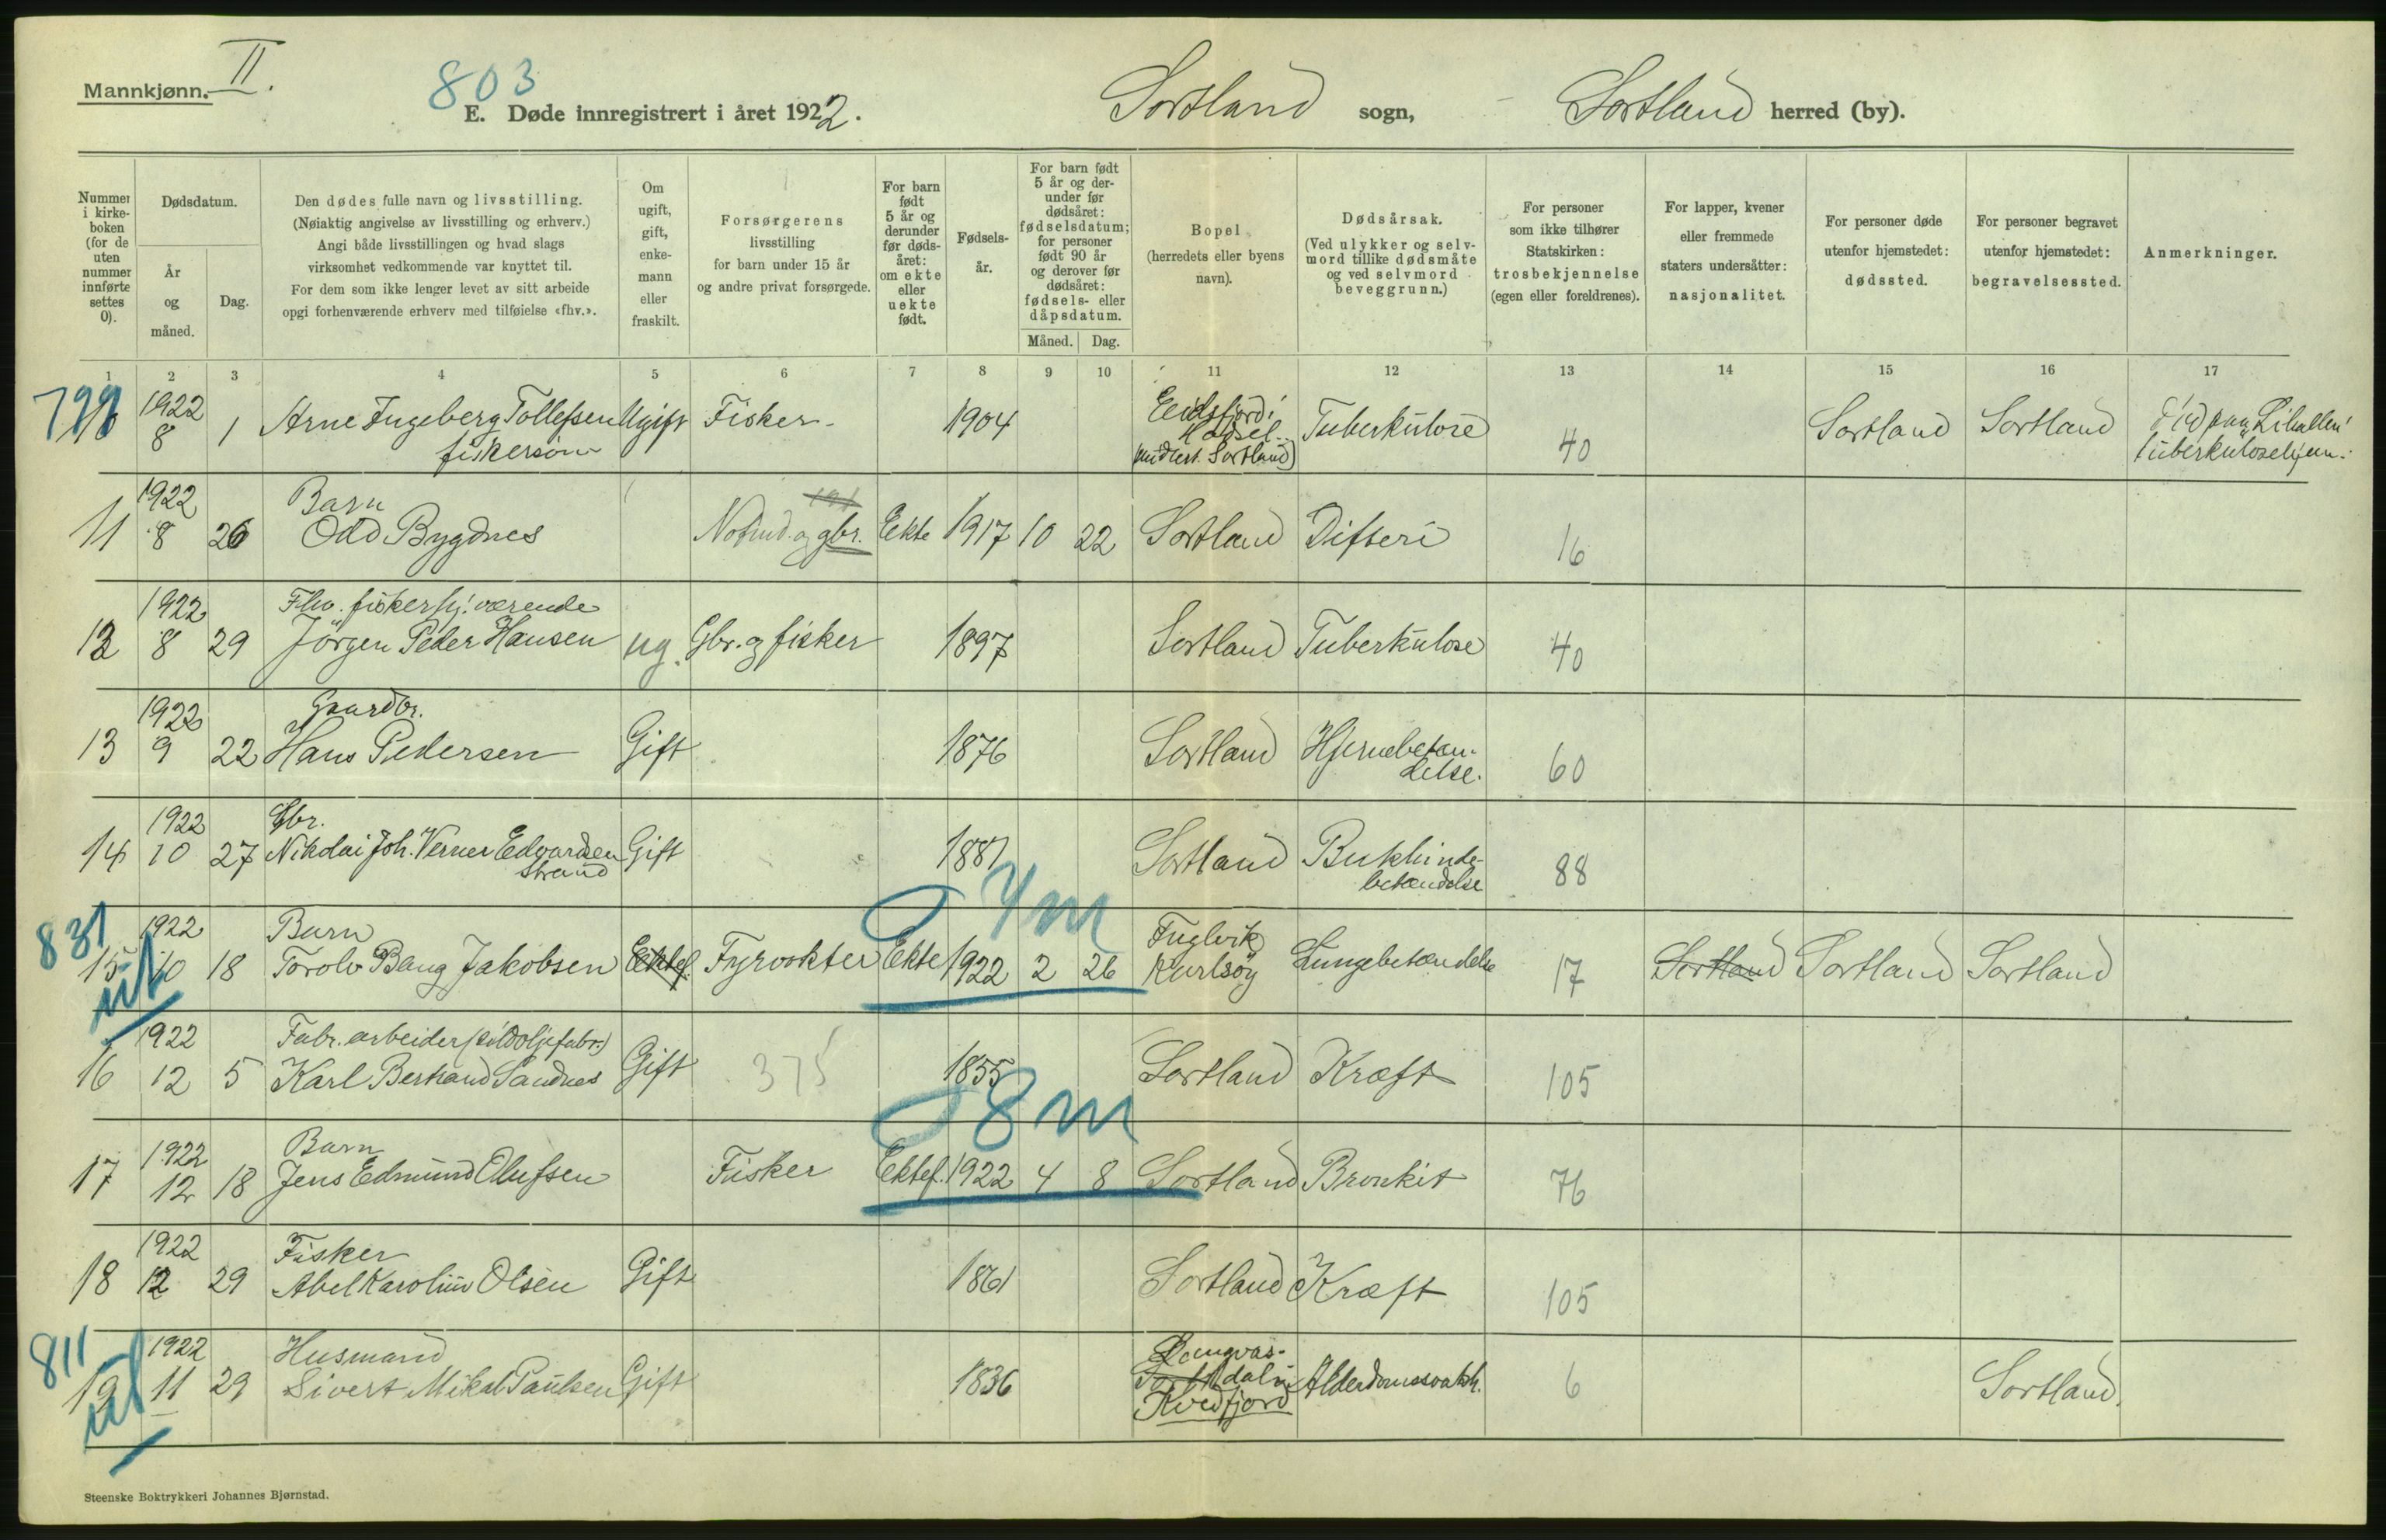 Mannkjønn. II.
803
E. Døde innregistrert i året 1922. Sortland sogn, Sortland herred (by).
Nummer i kirkeboken (for de uten nummer innførte settes 0).
Dødsdatum.
År og måned.
Dag.
Den dødes fulle navn og livsstilling.
(Nøiaktig angivelse av livsstilling og erhverv.)
Angi både livsstillingen og hvad slags
virksomhet vedkommende var knyttet til.
For dem som ikke lenger levet av sitt arbeide
opgi forhenværende erhverv med tilføielse «fhv.».
Om ugift, gift, enkemann eller fraskilt.
Forsørgerens
livsstilling
for barn under 15 år
og andre privat forsørgede.
For barn født 5 år og derunder før dødsåret: om ekte eller uekte født.
Fødselsår.
For barn født 5 år og derunder før dødsåret: fødselsdatum; for personer født 90 år og derover før dødsåret: fødsels- eller dåpsdatum.
Måned. Dag.
Bopel
(herredets eller byens
navn).
Dødsårsak.
(Ved ulykker og selvmord tillike dødsmåte og ved selvmord beveggrunn.)
For personer
som ikke tilhører
Statskirken:
trosbekjennelse
(egen eller foreldrenes).
For lapper, kvener
eller fremmede
staters undersåtter:
nasjonalitet.
For personer døde
utenfor hjemstedet:
dødssted.
For personer begravet
utenfor hjemstedet:
begravelsessted.
Anmerkninger.
1 2 3 4 5 6 7 8 9 10 11 12 13 14 15 16 17
1922 Eidsfjord i
10 8 1 Arne Ingeberg Tollefsen Ugift Fisker 1904 Hadsel Tuberkulose 40 Sortland Sortland
fiskersøn (midlert. Sortland) Tuberkulosehjem.
1922 Barn
11 8 26 Odd Bygdnes gbr. Ekte 1917 10 22 Sortland Difteri 16
1922 Fhv. fisker hj. værende
12 8 29 Jörgen Peder Hansen ug. Gbr. og fisker 1897 Sortland Tuberkulose 40
1922 Gaardbr.
13 9 22 Hans Pedersen Gift 1876 Sortland Hjernebetæn-
delse. 60
1922 Gbr.
14 10 27 Nikolai Joh. Verner Edvardsen Gift 1881 Sortland Bukhinde-
Strand betændelse 88
831 1922 Barn 7m Fuglvik
15 10 18 Torolv Bang Jakobsen Ektef. Fyrvokter Ekte 1922 2 26 Karlsöy Lungebetændelse 17 Sortland Sortland Sortland
ut
1922 Fabr. arbeider (sildoljefabr.)
16 12 5 Karl Bertrand Sandnes Gift 375 1855 Sortland Kræft 105
1922 Barn 8m
17 12 18 Jens Edmund Olufsen Fisker Ektef. 1922 4 8 Sortland Bronkit 76
1922 Fisker
18 12 29 Abel Karolius Olsen Gift 1861 Sortland Kræft 105
811 1922 Husmand Langvas-
19 11 29 Sivert Mikal Paulsen Gift 1836 dalen Alderdomssvakh. 6 Sortland.
ut Kvedfjord
Steenske Boktrykkeri Johannes Bjørnstad.